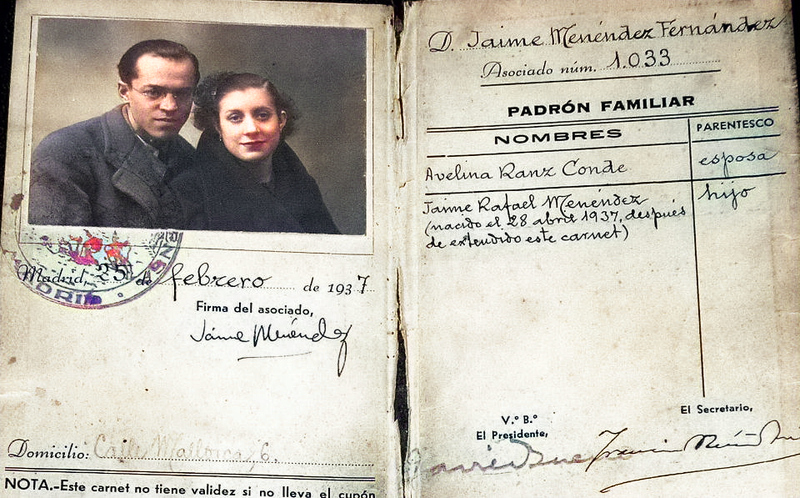 Madrid, 25 de febrero de 1937
Firma del asociado,
Jaime Menéndez
Domicilio: Calle Mallorca 6.
NOTA.-Este carnet no tiene validez si no lleva el cupón
D. Jaime Menéndez Fernández
Asociado núm. 1.033
PADRÓN FAMILIAR
NOMBRES PARENTESCO
Avelina Ranz Conde esposa
Jaime Rafael Menéndez hijo
(nacido el 28 abril 1937, después
de extendido este carnet)
V.º B.º
El Presidente,
El Secretario,